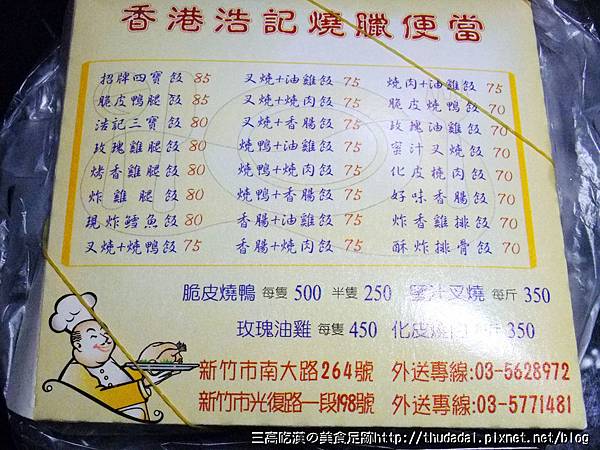 香港浩記燒臘便當
招牌四寶飯 85 叉燒+油雞飯 75 燒肉+油雞飯 75
脆皮鴨腿飯 85 叉燒+燒肉飯 75 脆皮燒鴨飯 70
浩記三寶飯 80 叉燒+香腸飯 75 玫瑰油雞飯 70
玫瑰雞腿飯 80 燒鴨+油雞飯 75 蜜汁叉燒飯 70
烤香雞腿飯 80 燒鴨+燒肉飯 75 化皮燒肉飯 70
炸雞腿飯 80 燒鴨+香腸飯 75 好味香腸飯 70
現炸鱈魚飯 80 香腸+油雞飯 75 炸香雞排飯 70
叉燒+燒鴨飯 75 香腸+燒肉飯 75 酥炸排骨飯 70
脆皮燒鴨 每隻 500 半隻 250 蜜汁叉燒 每斤 350
玫瑰油雞 每隻 450 化皮燒肉 每斤 350
新竹市南大路264號 外送專線:03-5628972
新竹市光復路一段198號 外送專線:03-5771481
三高吃漢の美食足跡http://thudadai.pixnet.net/blog